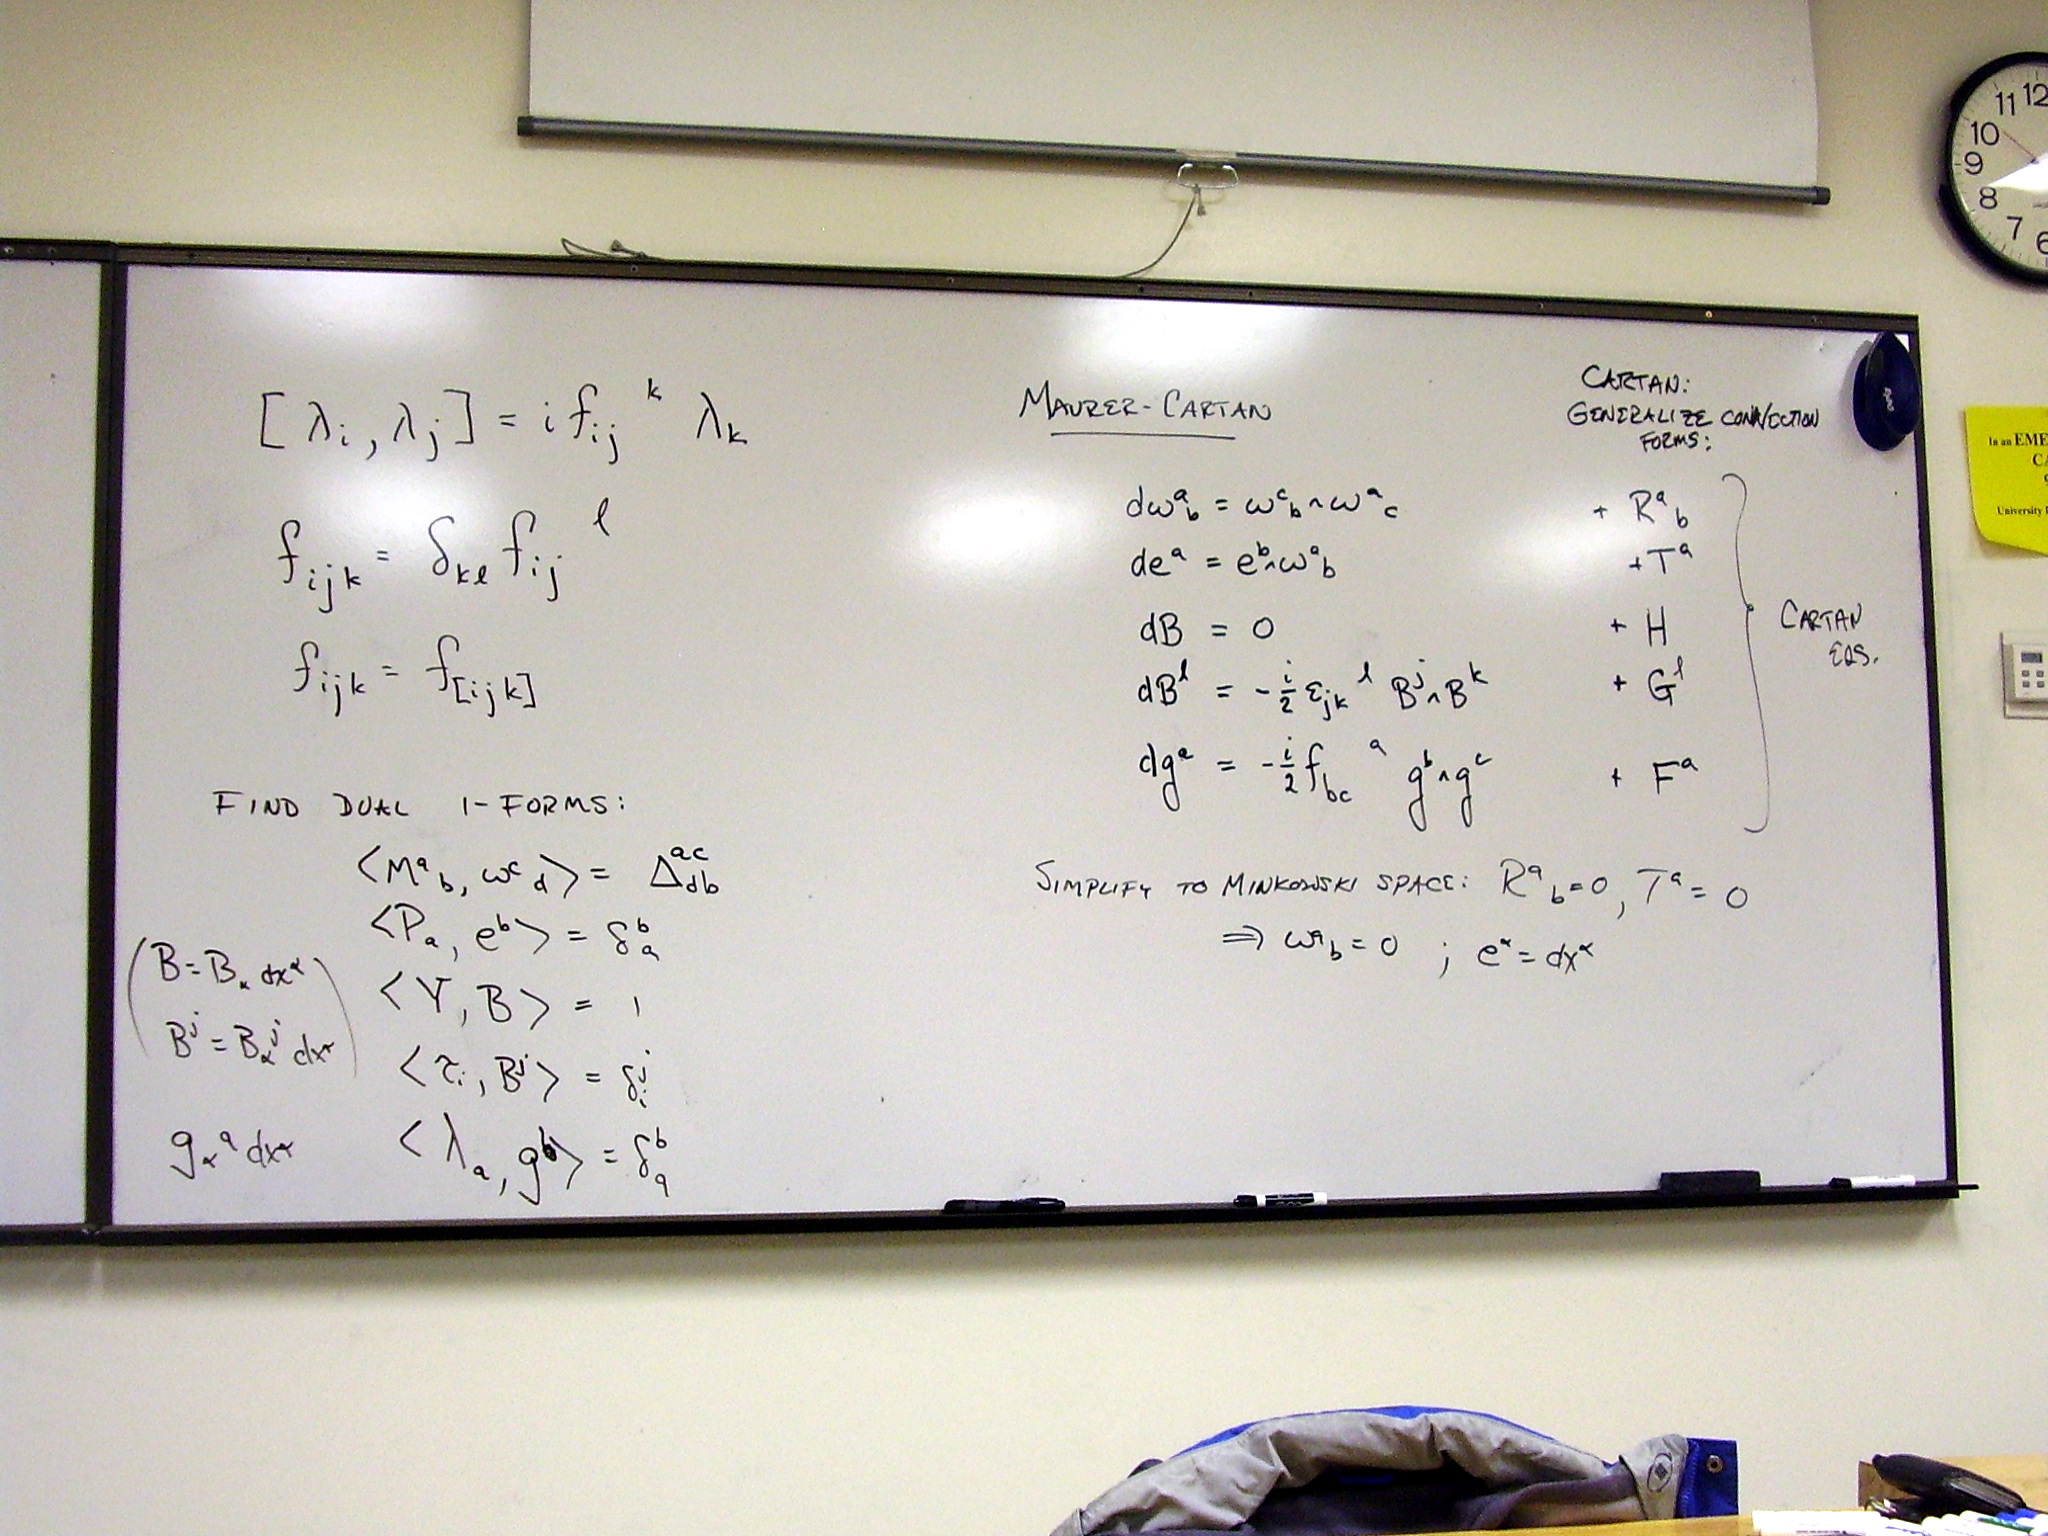 [λ_i, λ_j] = i f_{ij}^k λ_k
f_{ijk} = δ_{kl} f_{ij}^l
f_{ijk} = f_{[ijk]}
FIND DUAL 1-FORMS:
⟨M^a_b, ω^c_d⟩ = Δ^{ac}_{db}
⟨P_a, e^b⟩ = δ^b_a
(B = B_α dx^α
⟨Y, B⟩ = 1
B^j = B_α^j dx^α)
⟨τ_i, B^j⟩ = δ^j_i
g_α^a dx^α
⟨λ_a, g^b⟩ = δ^b_a
MAURER-CARTAN
CARTAN:
GENERALIZE CONNECTION
FORMS:
dω^a_b = ω^c_b ∧ ω^a_c + R^a_b
de^a = e^b ∧ ω^a_b + T^a
dB = 0 + H
dB^l = -i/2 ε_{jk}^l B^j ∧ B^k + G^l
dg^a = -i/2 f_{bc}^a g^b ∧ g^c + F^a
CARTAN
EQS.
SIMPLIFY TO MINKOWSKI SPACE: R^a_b = 0, T^a = 0
⇒ ω^a_b = 0 ; e^α = dx^α
11 12
10
9
8
7
6
In an EME
CA
9
University